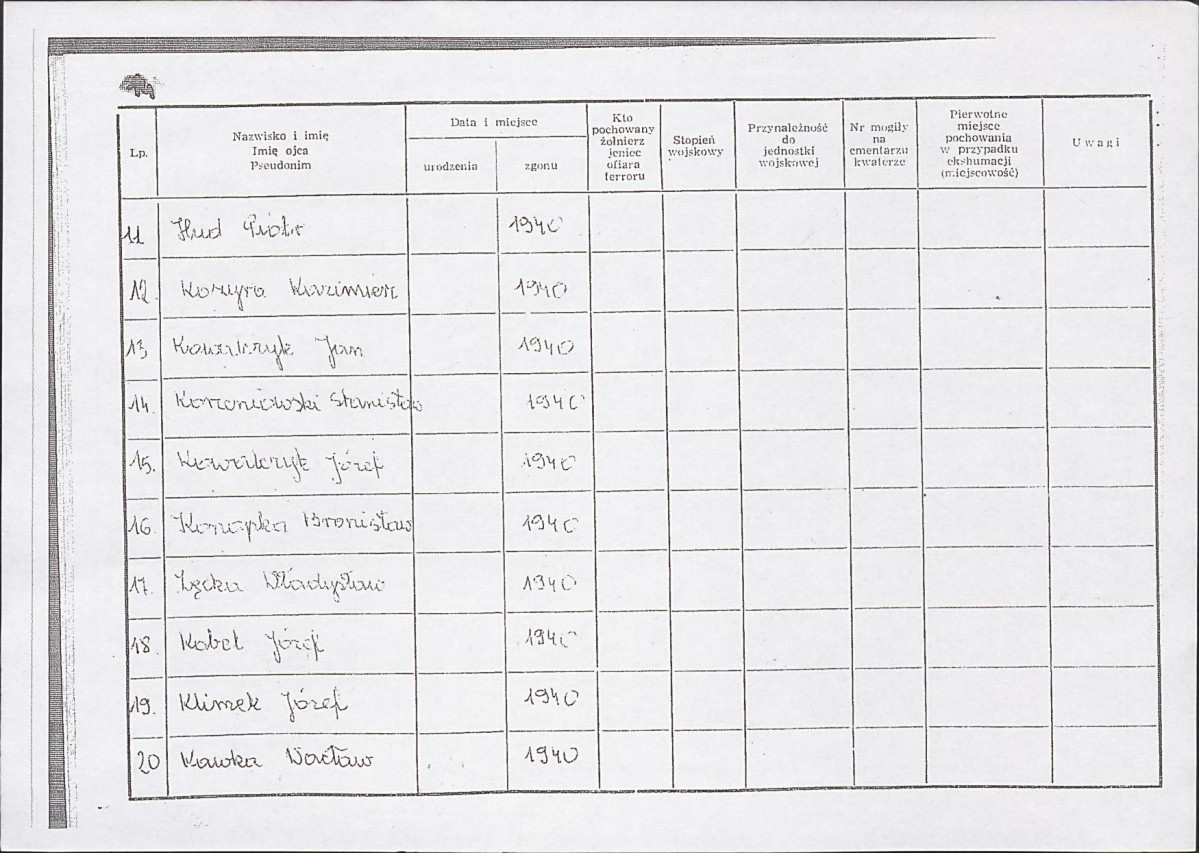 Lp.
Nazwisko i imię
Imię ojca
Pseudonim
Data i miejsce
urodzenia
zgonu
Kto
pochowany
żołnierz
jeniec
ofiara
terroru
Stopień
wojskowy
Przynależność
do
jednostki
wojskowej
Nr mogiły
na
cmentarzu
kwaterze
Pierwotne
miejsce
pochowania
w przypadku
ekshumacji
(miejscowość)
Uwagi
11 Hud Piotr 1940
12. Kozyra Kazimierz 1940
13, Kowalczyk Jan 1940
14. Korzeniowski Stanisław 1940
15. Kowalczyk Józef 1940
16. Konopka Bronisław 1940
17. Łęcka Władysław 1940
18. Kobel Józef 1940
19. Klimek Józef 1940
20 Kawka Wacław 1940